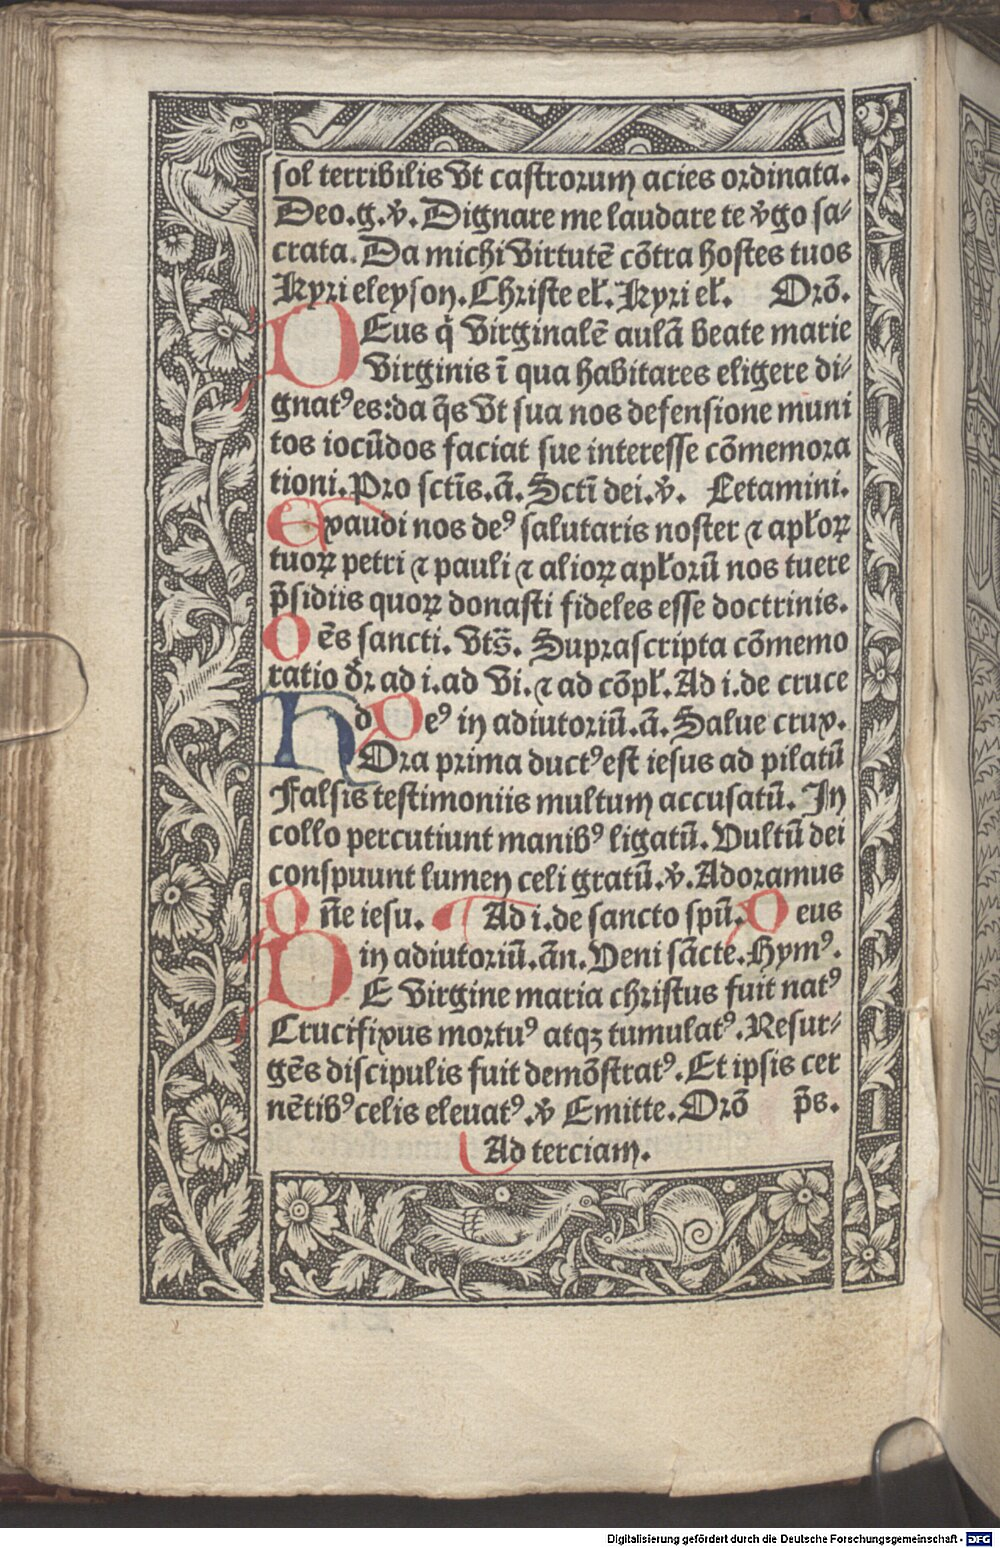 sol terribilis vt castrorum acies ordinata.
Deo.g.v̄. Dignare me laudare te v̄go sa⸗
crata. Da michi virtutē cōtra hostes tuos
Kyri eleyson. Christe eł. Kyri eł. Orō.
DEus q̇ virginalē aulā beate marie
virginis ī qua habitares eligere di⸗
gnatꝰ es: da q̄s vt sua nos defensione muni
tos iocūdos faciat sue interesse cōmemora
tioni. Pro sctīs.ā. Sctī dei.v̄. Letamini.
Exaudi nos deꝰ salutaris noster ⁊ apłoꝝ
tuoꝝ petri ⁊ pauli ⁊ alioꝝ apłorū nos tuere
p̄sidiis quoꝝ donasti fideles esse doctrinis.
Oēs sancti. vts̄. Suprascripta cōmemo
ratio dr̄ ad i. ad vi. ⁊ ad cōpł. Ad i. de cruce
d Deꝰ in adiutoriū.ā. Salue crux.
HOra prima ductꝰ est iesus ad pilatū
Falsis testimoniis multum accusatū. In
collo percutiunt manibꝰ ligatū. Vultū dei
conspuunt lumen celi gratū.v̄. Adoramus
Dn̄e iesu. Ad i. de sancto spū. Deus
in adiutoriū.ān. Veni sācte. Hymꝰ.
DE virgine maria christus fuit natꝰ
Crucifixus mortuꝰ atqꝫ tumulatꝰ. Resur⸗
gēs discipulis fuit demōstratꝰ. Et ipsis cer
nētibꝰ celis eleuatꝰ.v̄ Emitte. Orō p̄s.
Ad terciam.
Digitalisierung gefördert durch die Deutsche Forschungsgemeinschaft - DFG